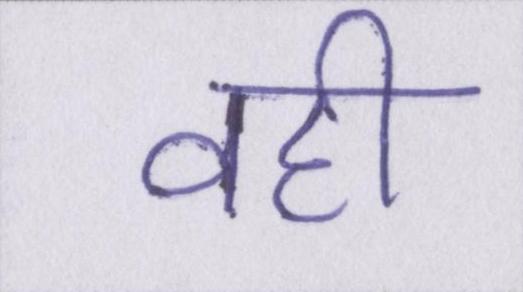 वही